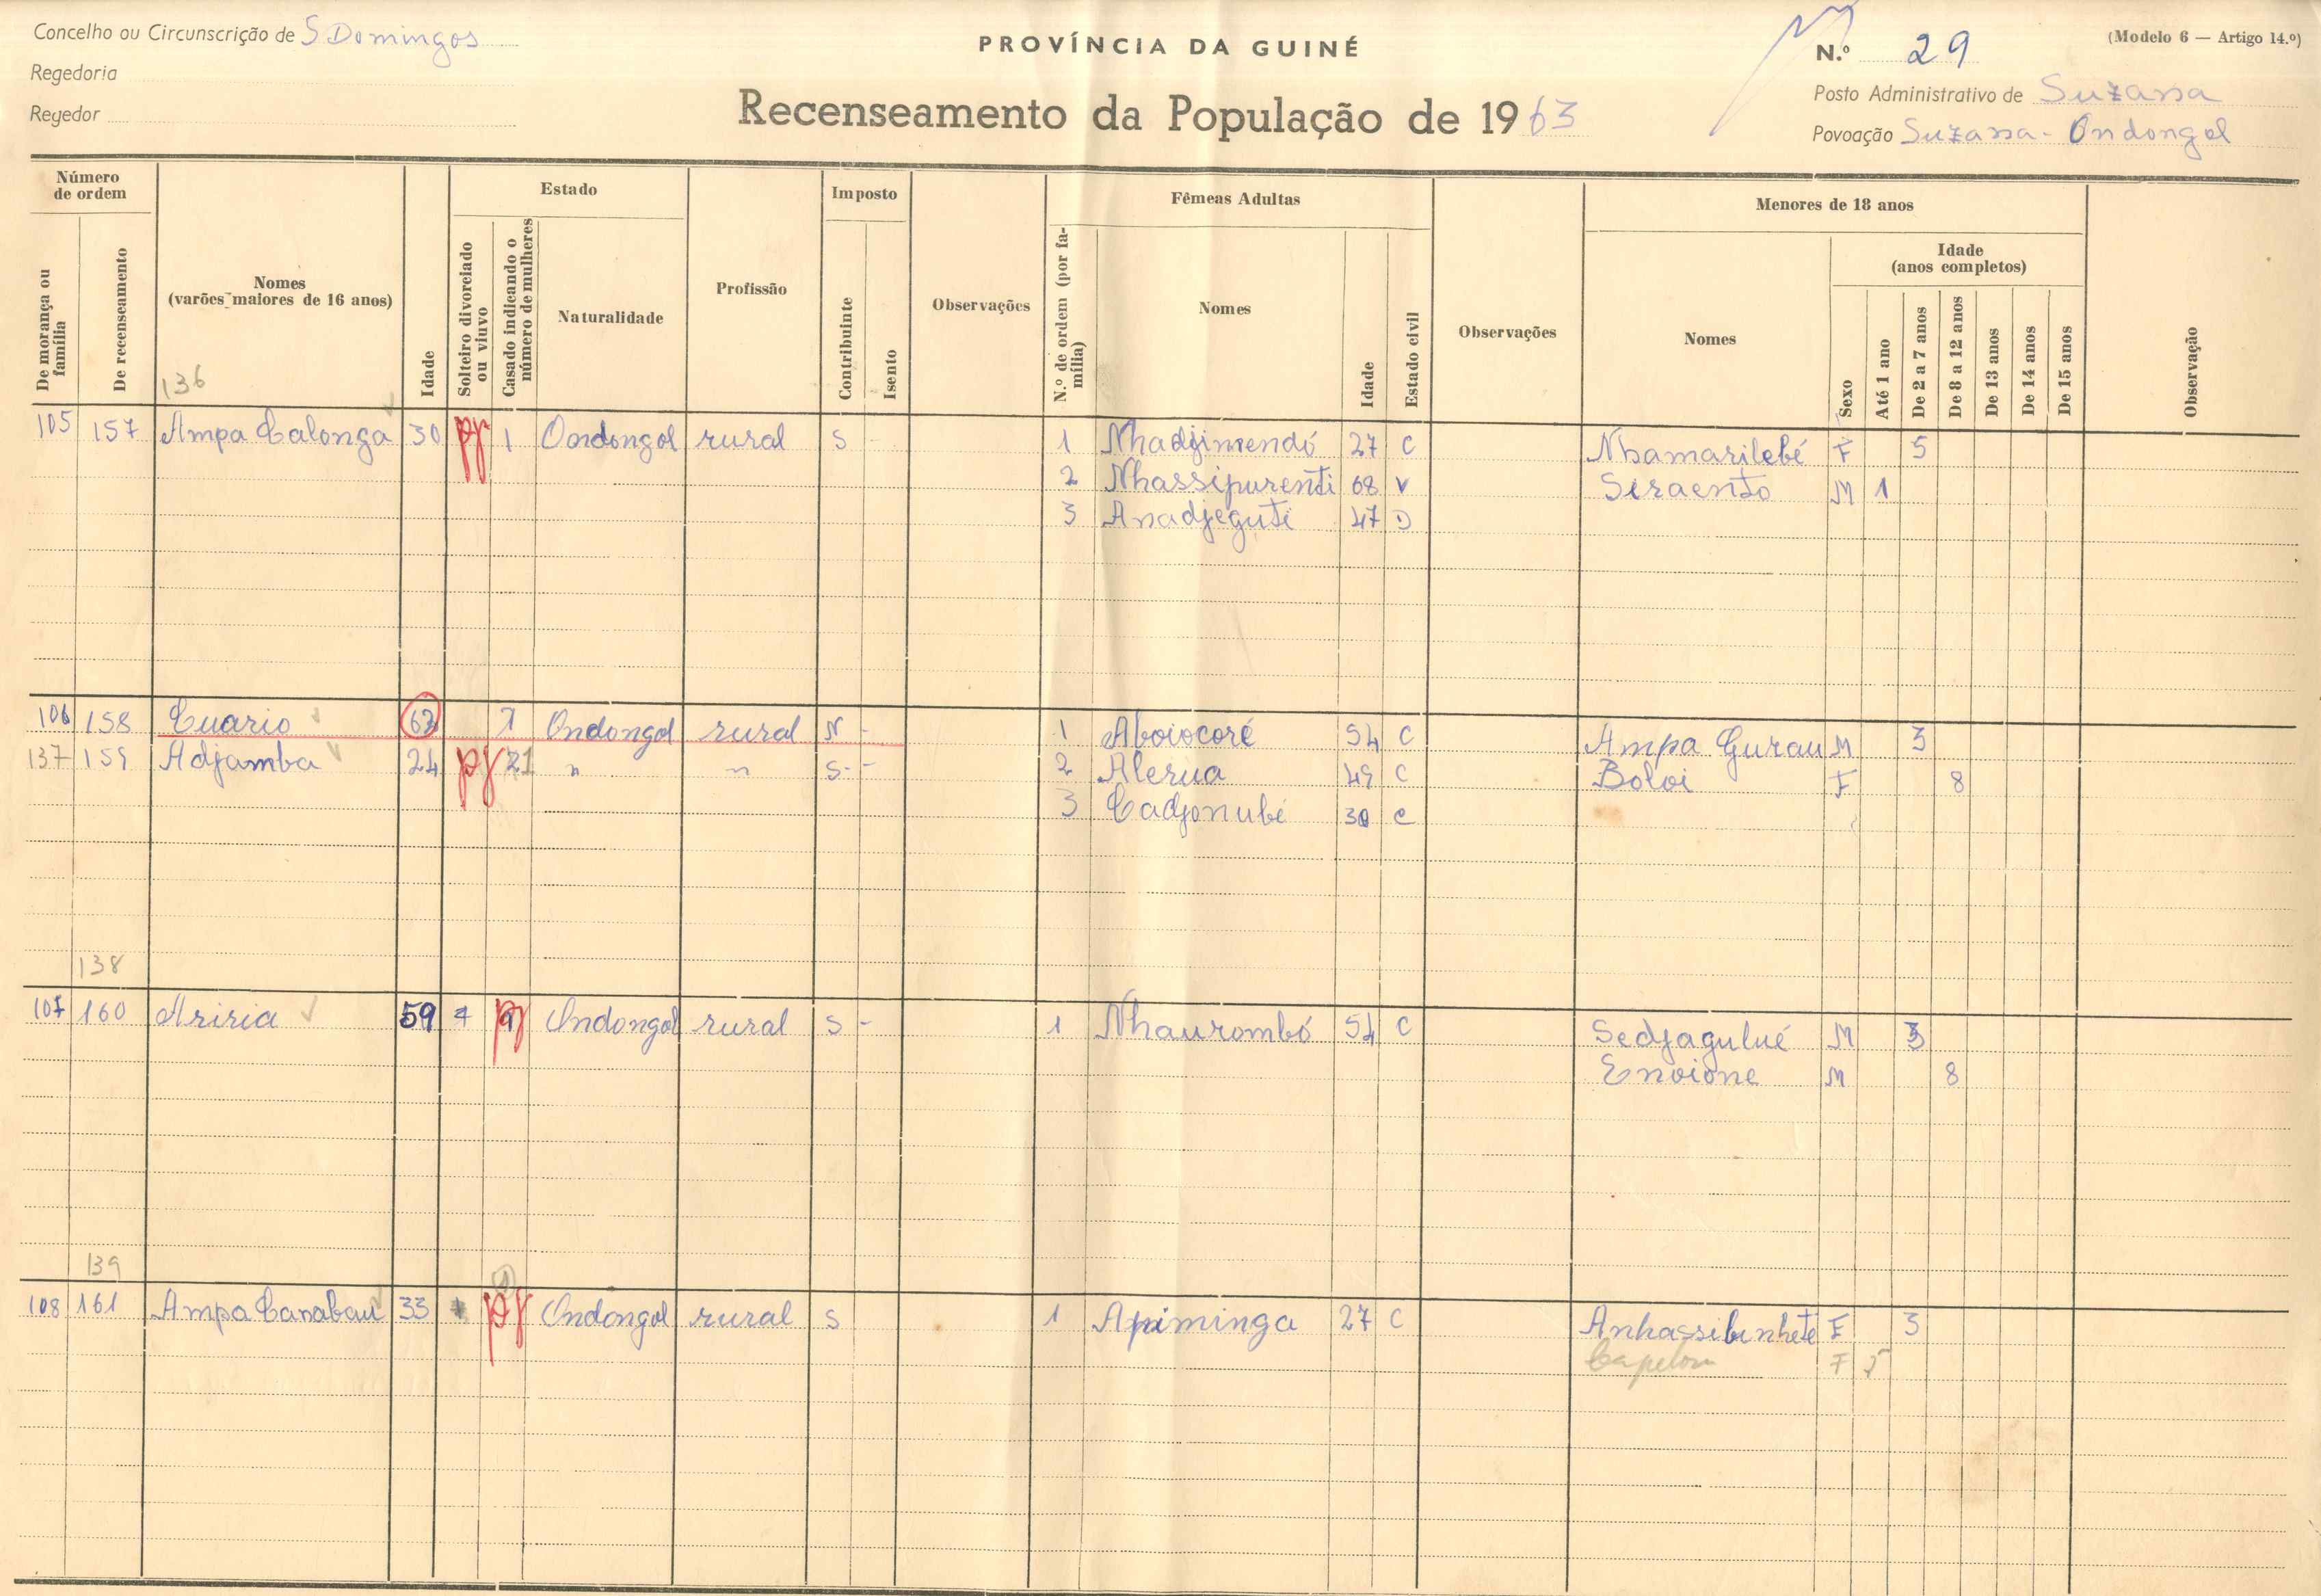 Concelho ou Circunscrição de S Domingos
PROVÍNCIA DA GUINÉ
N.º 29
(Modelo 6 — Artigo 14.º)
Regedoria
Recenseamento da População de 1963
Posto Administrativo de Suzana
Regedor
Povoação Suzana - Ondongol
Número de ordem
De morança ou família
De recenseamento
Nomes
(varões maiores de 16 anos)
136
Idade
Estado
Solteiro divorciado ou viuvo
Casado indicando o número de mulheres
Naturalidade
Profissão
Imposto
Contribuinte
Isento
Observações
Fêmeas Adultas
N.º de ordem (por família)
Nomes
Idade
Estado civil
Observações
Menores de 18 anos
Nomes
Sexo
Idade
(anos completos)
Até 1 ano
De 2 a 7 anos
De 8 a 12 anos
De 13 anos
De 14 anos
De 15 anos
Observação
105 157 Ampa Calonga 30 pg 1 Ondongol rural S - 1 Nhadjimendó 27 C Nhamarilebé F 5
2 Nhassipurenti 68 V Siraento M 1
3 Anadjeguti 47 D
106 158 Cuario 63 1 Ondongol rural N - 1 Aboiocoré 54 C Ampa Gurau M 3
137 159 Adjamba 24 pg 1 " " S - - 2 Alerua 49 C Boloi F 8
3 Cadjonubé 30 C
138
107 160 Ariria 59 pg Ondongol rural S - 1 Nhaurombó 54 C Sedjagulué M 3
Enoione M 8
139
108 161 Ampa Canabau 33 pg Ondongol rural S 1 Apiminga 27 C Anhassibinhete F 3
F